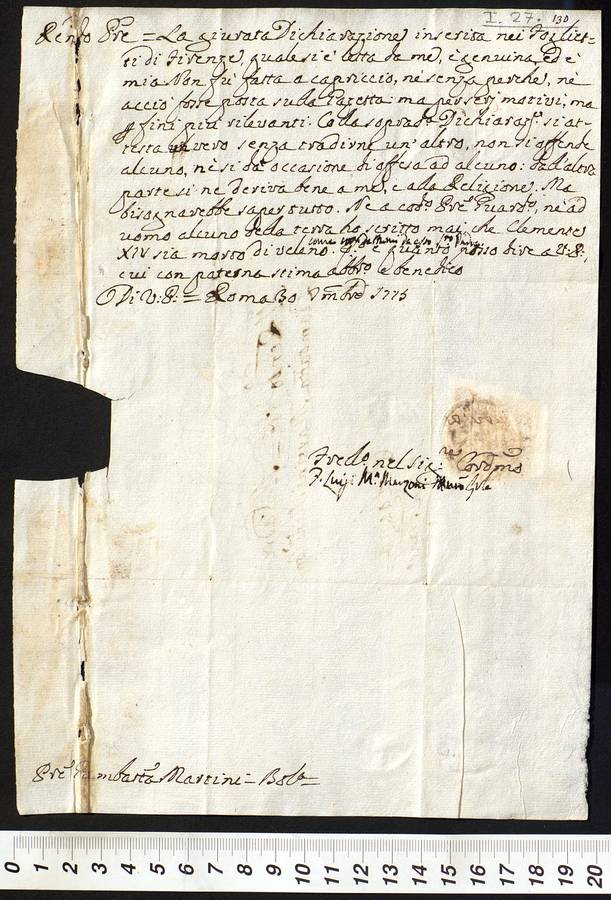 I. 27. 130
Rendo Pre = La giurata Dichiarazione inserita nei Fogliet-
ti di Firenze, quale si è letta da me, è genuina, ed è
mia. Non fu fatta a capriccio, nè senza perchè, nè
acciò fosse posta sulla Gazetta: ma per serj motivi, ma
p fini più rilevanti. Colla sopradª Dichiarazᵉ si at-
testa un vero senza tradirne un' altro, non si offende
alcuno, nè si dà occasione di offesa ad alcuno: dall'altra
parte si ne deriva bene a me, e alla Religione. Ma
bisognarebbe saper tutto. Ne a codº Pre Guardº, nè ad
uomo alcuno della terra ho scritto mai, che Clemente
XIV sia morto di veleno. Qº è quanto posso dire a V: P:,
cui con paterna stima abbrº e benedico
Di V: P: = Roma 30 Xmbre 1775
Fredº nel Sigʳᵉ Cordmo
F. Luigi Mª Marzoni Minº Gnle
Pre Giambattª Martini = Bolª =
0 1 2 3 4 5 6 7 8 9 10 11 12 13 14 15 16 17 18 19 20